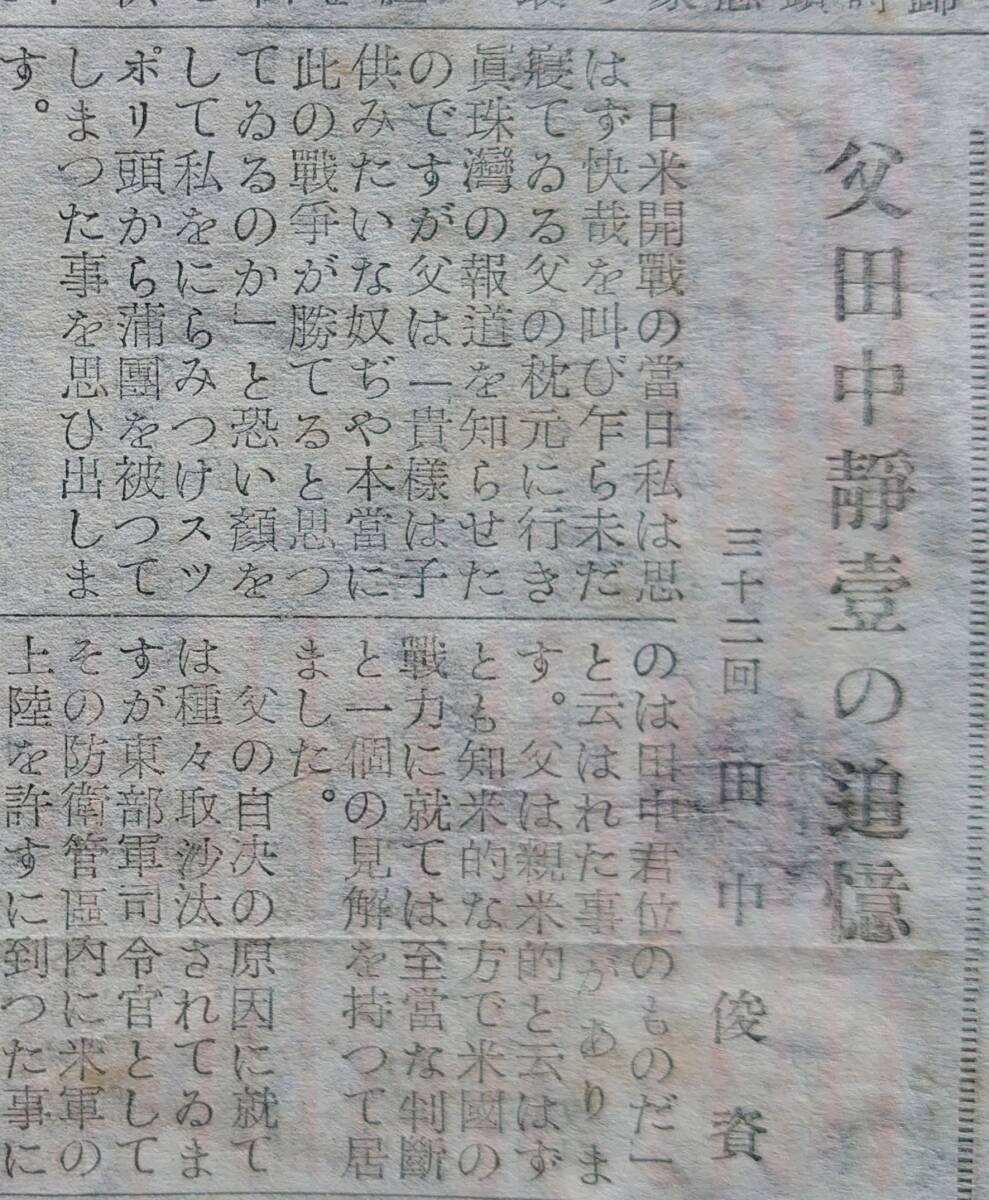 父田中靜壹の追憶
三十二回 田中俊資
日米開戰の當日私は思
はず快哉を叫び乍ら未だ
寢てゐる父の枕元に行き
眞珠灣の報道を知らせた
のですが父は「貴様は子
供みたいな奴ぢや本當に
此の戰爭が勝てると思つ
てゐるのか」と恐い顏を
して私をにらみつけスツ
ポリ頭から蒲團を被つて
しまつた事を思ひ出しま
す。
のは田中君位のものだ」
と云はれた事がありま
す。父は親米的と云はず
とも知米的な方で米國の
戰力に就ては至當な判斷
と一個の見解を持つて居
ました。
父の自決の原因に就て
は種々取沙汰されてゐま
すが東部軍司令官として
その防衛管區内に米軍の
上陸を許すに到つた事に